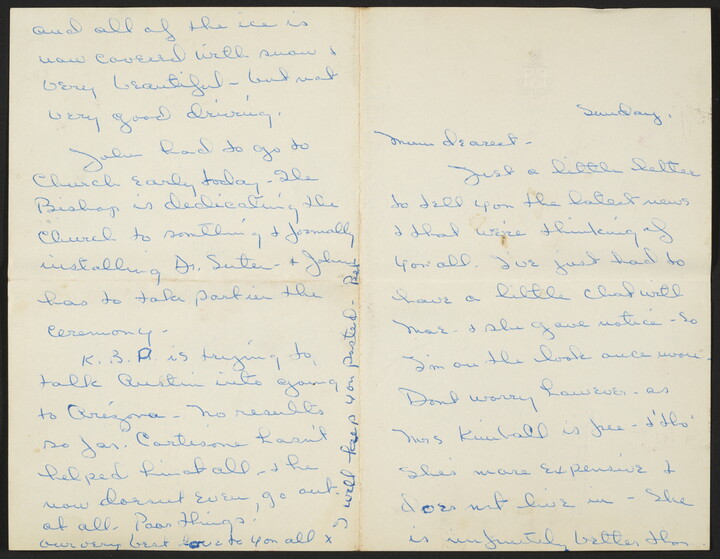 Sunday.
Mum dearest -
Just a little letter
to tell you the latest news
& that we're thinking of
you all. I've just had to
have a little chat with
Mae - & she gave notice - So
I'm on the look once more -
Dont worry however - as
Mrs Kimball is free - & tho'
She's more expensive &
does not live in - She
is infinitely better than
and all of the ice is
now covered with snow &
very beautiful - but not
very good driving.
John had to go to
Church early today - The
Bishop is dedicating the
Church to something & formally
installing Dr. Suter - & John
has to take part in the
ceremony -
K. B. P. is trying to
talk Austin into going
to Arizona - No results
so far. Cortisone hasn't
helped him at all - & he
now doesnt even go out
at all. Poor things.
our very best love to you all x
I will keep you posted -